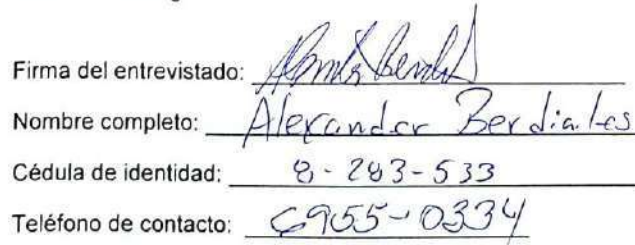 Firma del entrevistado:
Nombre completo: Alexander Berdiales
Cédula de identidad: 8-283-533
Teléfono de contacto: 6955-0334